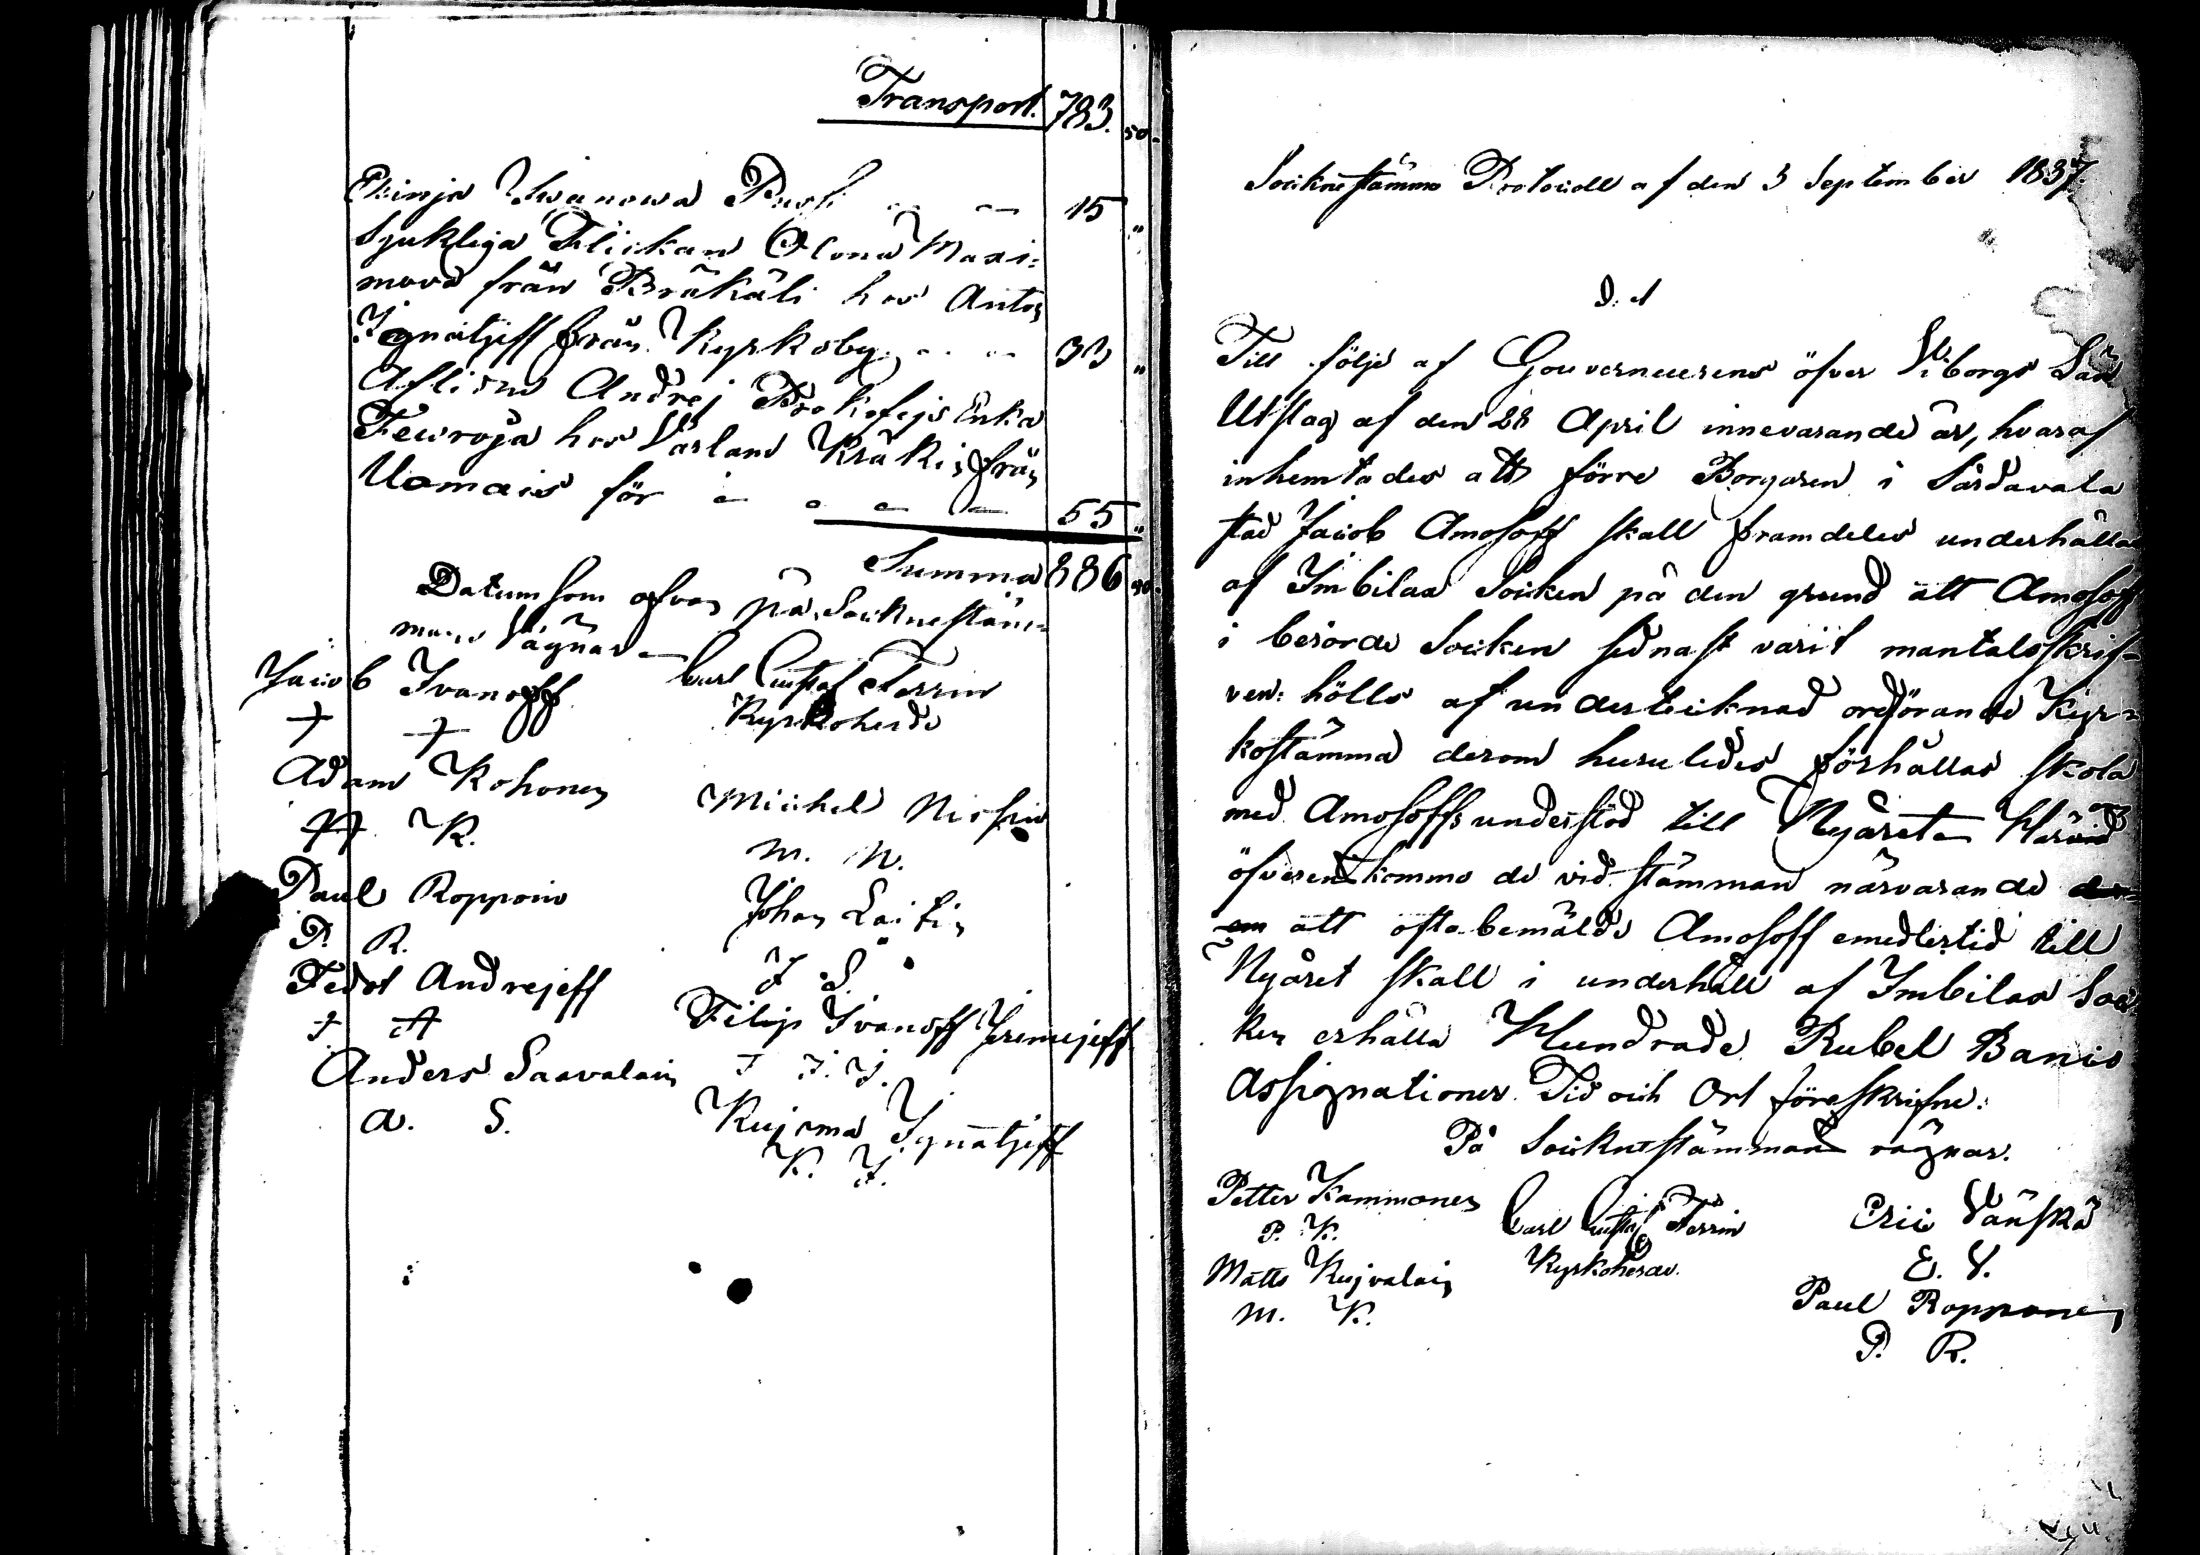 Transport. 783. 50.
Irinja Iwanowa Rusk 15 "
Sjukliga Flickan Olona Maxi=
mova från Bräkäli hos Anton
Ignatjeff från Kyrkoby 33 "
Aflidne Andrej Prokofejs Enka
Fewroja hos Varlam Kräkin från
Uomais för 55 "
Summa 886 50.
Datum som ofvan på Sockne stäm=
mans Vägnar
Jacob Ivanoff Carl Gustaf Ferrin
† † Kyrkoherde
Adam Kohonen Michel Nissin
A K. M. N.
Paul Ropponen Johan Laitin
P. R. J. L.
Fedot Andrejeff Filip Ivanoff Jeremejeff
F A F I. J.
Anders Saavalain Kujsma Ignatjeff
A. S. K. I.
Sockne stämmo Protocoll af den 3 September 1837.
S. d
Till följe af Gouverneurens öfver Viborgs Län
Utslag af den 28 April innevarande år, hvaraf
inhemtades att förre Borgaren i Sårdavala
stad Jacob Amosoff skall framdeles underhållas
af Imbilax Socken på den grund att Amosoff
i berörde Socken sednast varit mantalsskrif-
ven: hölls af undertecknad ordförande Kyr=
kostämma derom huruledes förhållas skola
med Amosoffs understöd till Nyåret Härvid
öfverenskommo de vid stämman närvarande der=
om att oftabemälde Amosoff emedlertid till
Nyåret skall i underhåll af Imbilax Soc
ken erhålla Hundrade Rubel Banco
Assignationer. Tid och Ort föreskrifne:
På Socknestämmans vägnar.
Petter Kammonen Carl Gustaf Ferrin Eric Vänskä
P. K. Kyrkoherde. E. V.
Matts Kujvalain Paul Ropponen
M. K. P. R.